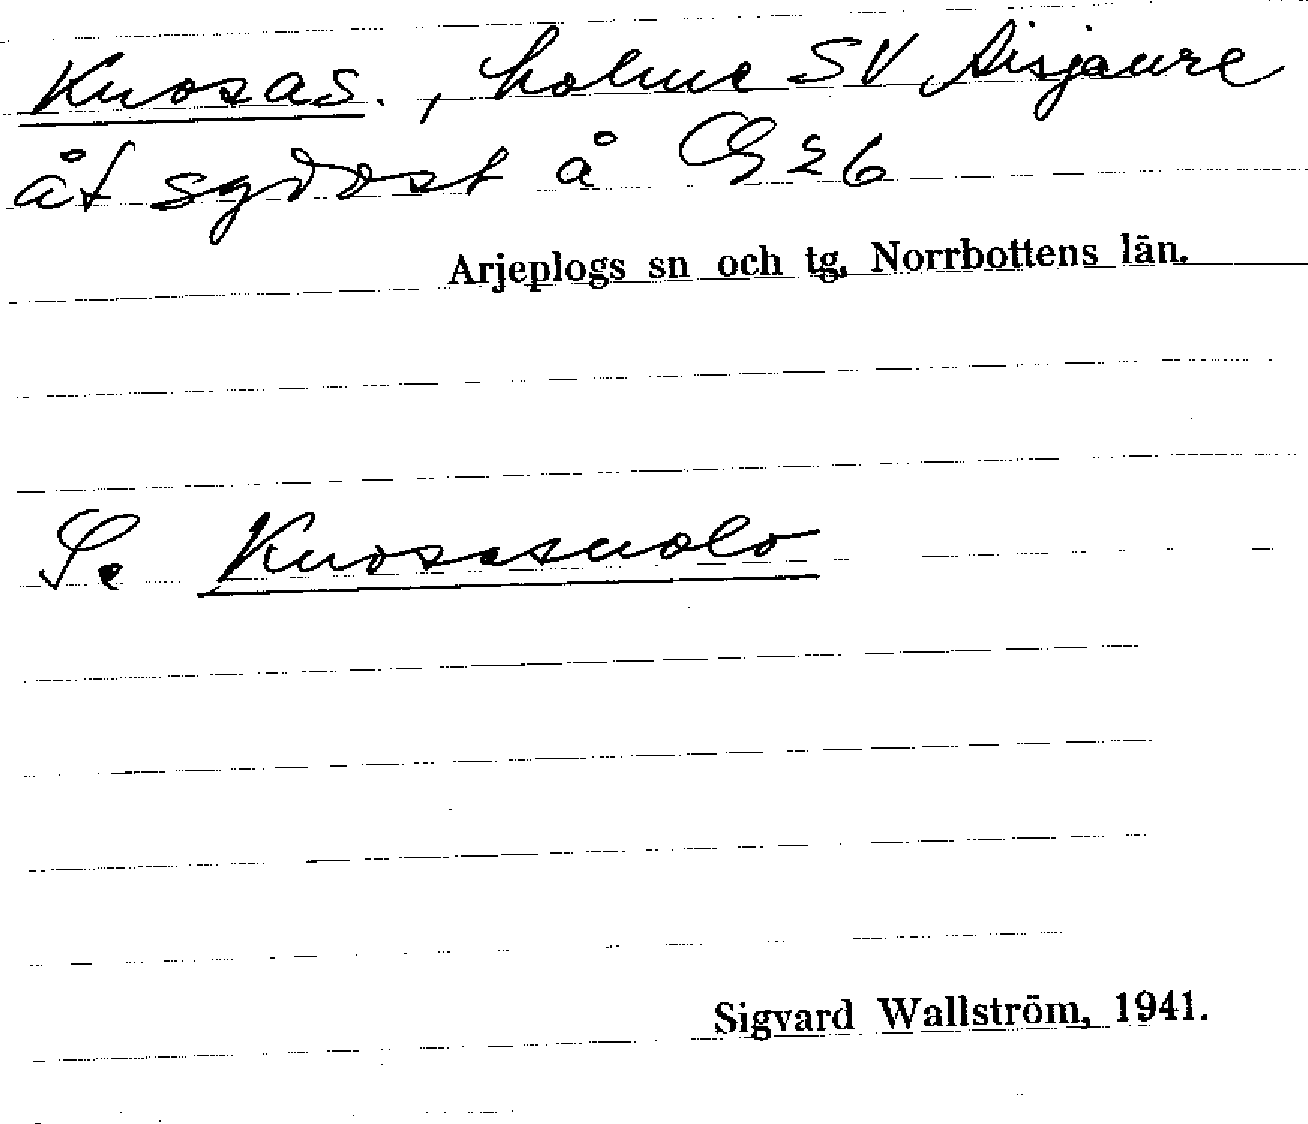 Knosas., holme SV Aisjaure
åt sydost å Cg 26
Arjeplogs sn och tg, Norrbottens län.
Se Knosassuolo
Sigvard Wallström, 1941.